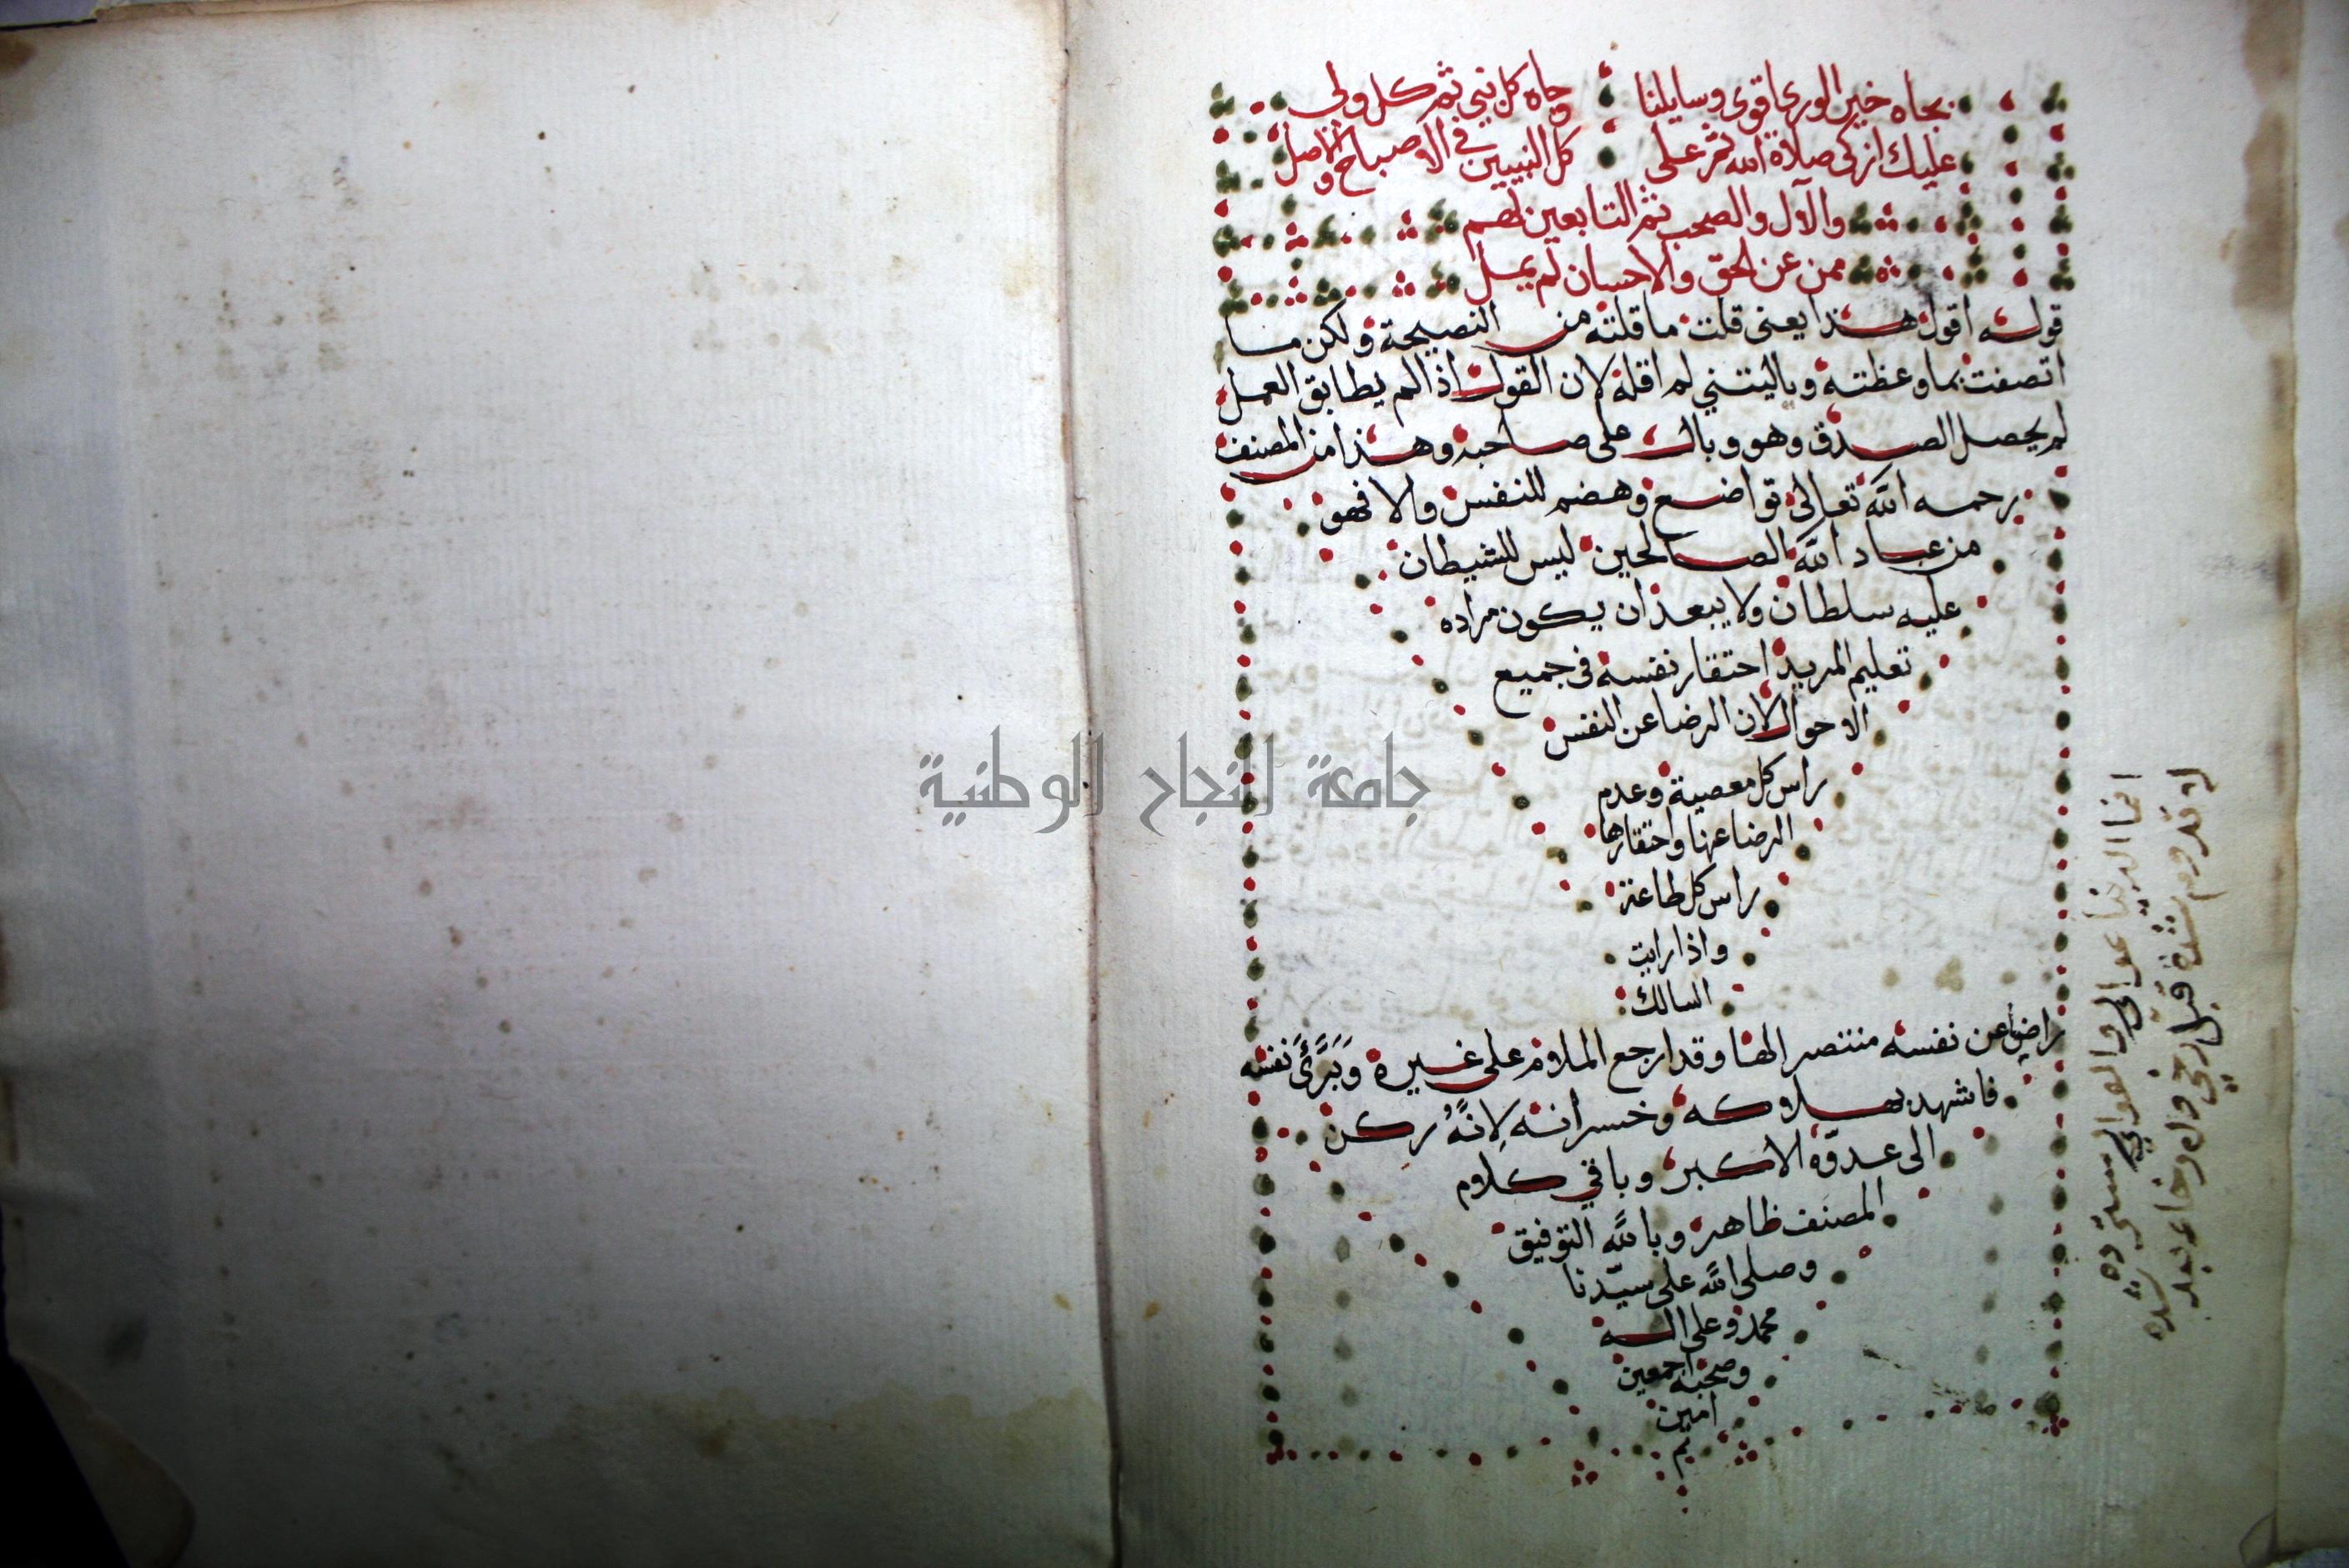 بجاه خير الورى اقوى وسايلنا وجاه كل نبي ثم كل ولي
عليك ازكى صلاة الله ثم على كل النبيين في الاصباح والاصل
والآل والصحب ثم التابعين لهم
ممن عن الحق والاحسان لم يمل
قوله اقول هذا يعنى قلت ما قلته من النصيحة ولكن ما
اتصفت بما وعظته وياليتني لم اقله لان القول اذا لم يطابق العمل
لم يحصل الصدق وهو وبال على صاحبه وهذا من المصنف
رحمه الله تعالى تواضع وهضم للنفس والا فهو
من عباد الله الصالحين ليس للشيطان
عليه سلطان ولا يبعد ان يكون مراده
تعليم المريد احتقار نفسه فى جميع
الاحوال لان الرضا عن النفس
راس كل معصية وعدم
الرضا عنها واحتقارها
راس كل طاعة
واذا رايت
السالك
راضيا عن نفسه منتصر الها وقد ارجع الملام على غيره وَبَرَّئَ نفسه
فاشهد بهلاكه وخسرانه لانَّهُ ركن
الى عدوّه الاكبر وباقي كلام
المصنف ظاهر وبالله التوفيق
وصلى الله على سيّدنا
محمد وعلى اله
وصحبه اجمعين
امين
م
انما الدنيا عوالي والعوالي مسترده
شدة قبل رخي ورخا عبد شده
جامعة النجاح الوطنية